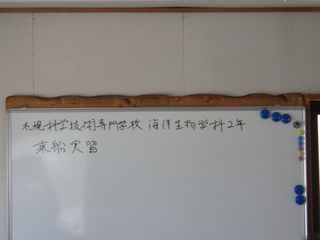 札幌科学技術専門学校 海洋生物学科2年
乗船実習